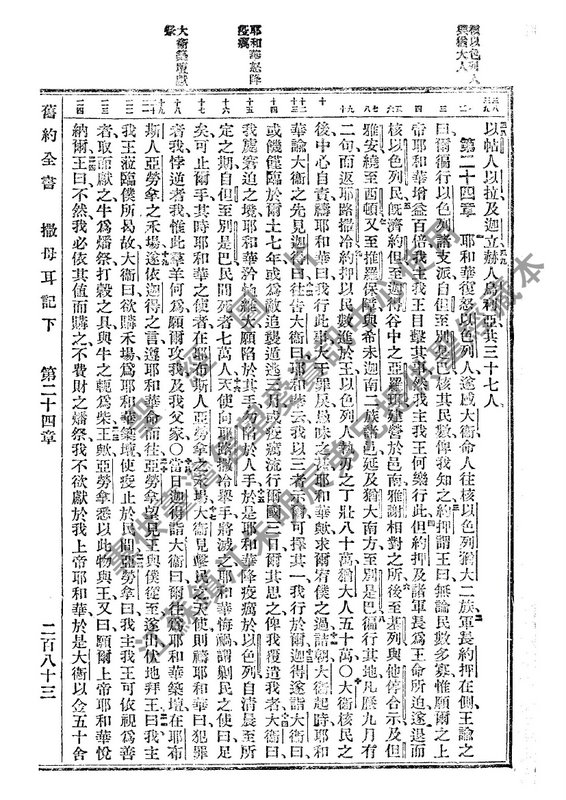 核以色列人
與猶大人
耶和華怒降
疫癘
大衛築壇獻
祭
以帖人以拉及迦立赫人烏利亞共三十七人
第二十四章
耶和華復怒以色列人遂感大衛命人往核以色列猶大二族軍長約押在側王諭之
曰爾徧行以色列諸支派自但至別是巴核其民數俾我知之約押謂王曰無論民數多寡惟願爾之上
帝耶和華增益百倍我主我王目擊其事然我主我王何樂行此但約押及諸軍長爲王命所迫遂退而
核以色列民既濟約但至迦得谷中之亞羅珥建營於邑南雅謝相對之所後至基列與他停合示及但
雅安繞至西頓又至推羅保障與希未迦南二族諸邑延及猶大南方至別是巴徧行其地凡歷九月有
二旬而返耶路撒冷約押以民數進於王以色列人執刃之丁壯八十萬猶大人五十萬〇大衛核民之
後中心自責禱耶和華曰我行此事干大罪戾愚昧之極耶和華歟求爾宥僕之過詰朝大衛起時耶和
華諭大衛之先見迦得曰往告大衛曰耶和華云我以三者示爾可擇其一我行於爾迦得遂詣大衛曰
或饑饉臨於爾土七年或爲敵追襲遁逃三月或疫癘流行爾國三日爾其思之俾我覆遣我者大衛曰
我處窘迫之境耶和華矜恤維大願陷於其手勿陷於人手於是耶和華降疫癘於以色列自清晨至所
定之期自但至別是巴民間死者七萬人天使向耶路撒冷舉手將滅之耶和華悔禍謂剿民之使曰足
矣可止爾手其時耶和華之使者在耶布斯人亞勞拿之禾場大衛見擊民之天使則禱耶和華曰犯罪
者我悖逆者我惟此羣羊何爲願爾攻我及我父家〇當日迦得詣大衛曰爾往爲耶和華築壇在耶布
斯人亞勞拿之禾場遂依迦得之言遵耶和華命而往亞勞拿望見王與僕從至遂出伏地拜王曰我主
我王涖臨僕所曷故大衛曰欲購禾場爲耶和華築壇使疫止於民間亞勞拿曰我主我王可依視爲善
者取而獻之牛爲燔祭打穀之具與牛之軛爲柴王歟亞勞拿悉以此物與王又曰願爾上帝耶和華悅
納爾王曰不然我必依其值而購之不費財之燔祭我不欲獻於我上帝耶和華於是大衛以金五十舍
舊約全書　撒母耳記下　第二十四章　二百八十三